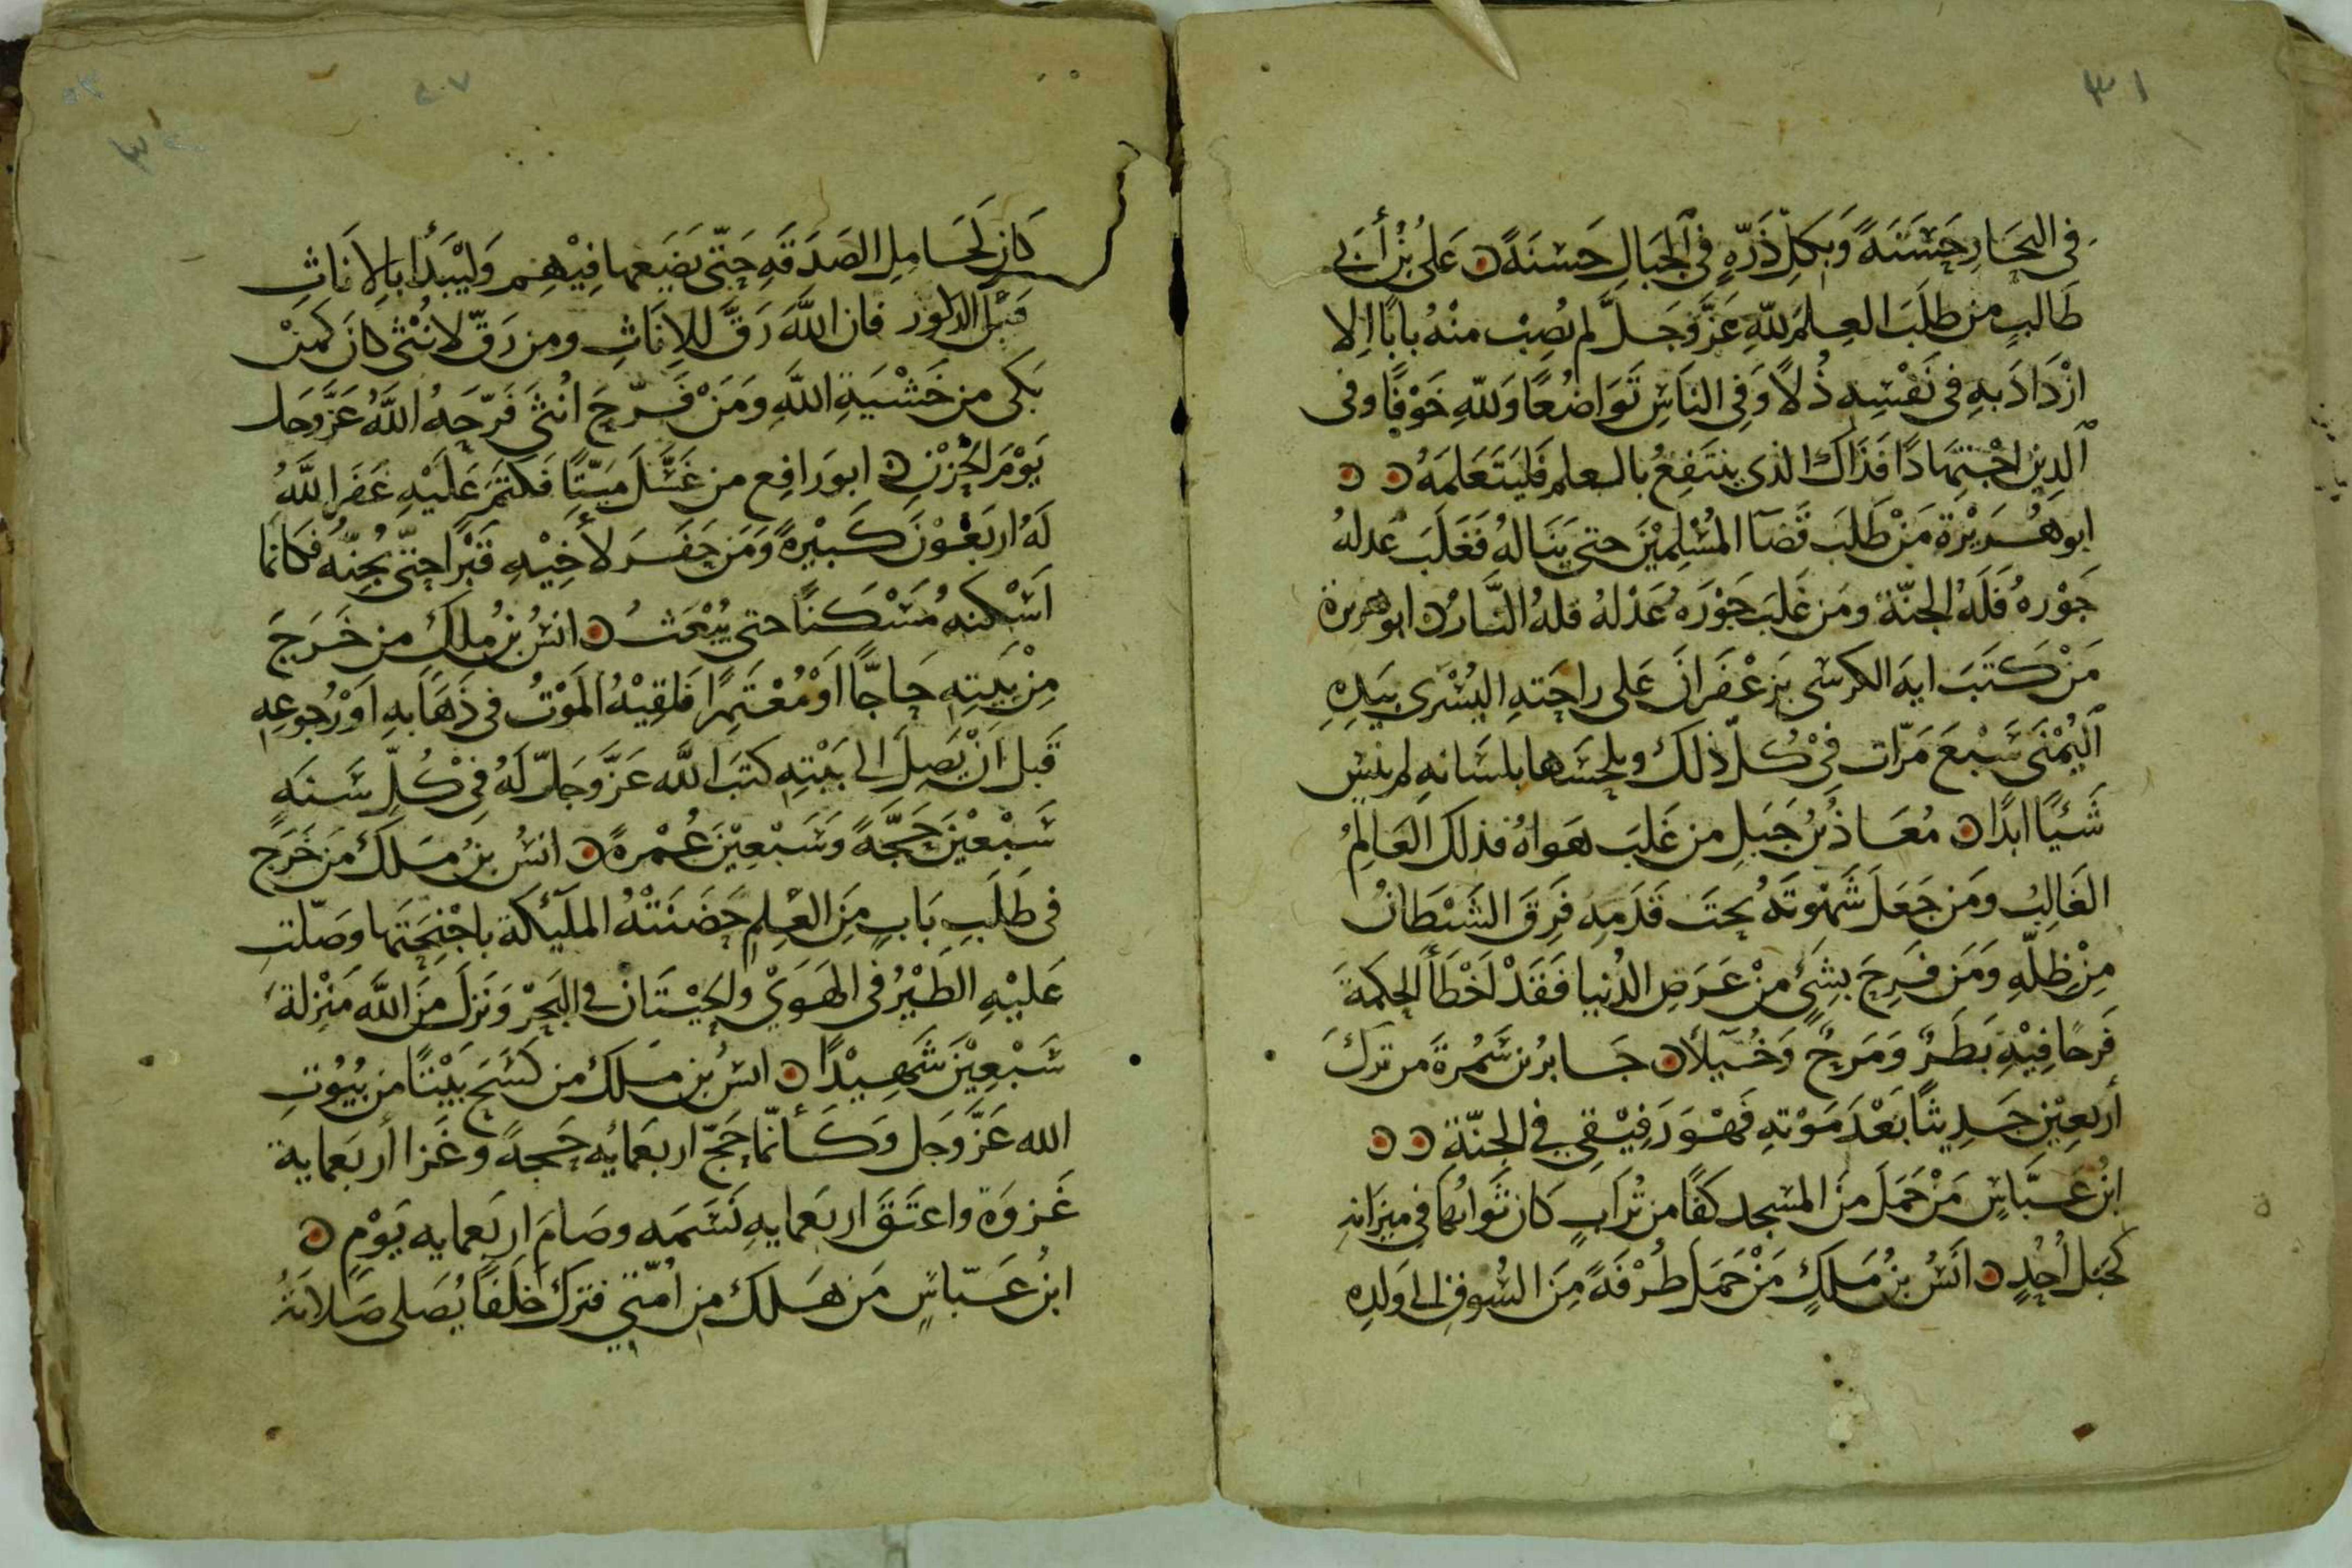 ٣١
في البحَارِ حَسَنَةً وَبِكلِّ ذَرّةٍ في الجبَالِ حَسنَةً ن عَلىُ بْنُ أَبي
طَالبٍ من طلَبَ العِلمَ للهِ عَزَّوَجَلَّ لم يُصِبْ منْهُ بابًا اِلا
ازْدَادَ بهِ في نَفْسِهِ ذُلاً وَفِي الناسِ تَوَاضُعًا وَللهِ خَوْفًا وفى
الدِينِ اجْتِهَادًا فَذَاكَ الذى ينتَفِعُ بالعلم فَليَتَعَلمَهُ ن ن
ابو هُرَيْرَة مَنْ طَلَبَ قَضَآ المُسْلِمِيْنَ حتى يَنَالهُ فَغَلَبَ عَدلهُ
جَوْرهُ فَلَهُ الجنّة ومَن غَلَبَ جَوْرَهُ عَدْلهُ فلهُ النَّارُ ن ابو هريرة
مَنْ كَتَبَ ايهَ الكرسى بزَعْفَرَانَ عَلى راحَتهِ اليُسْرَى بيَدِهِ
اليُمْنَى سَبْعَ مَرّات فِىْ كُلّ ذلكَ ويلحسَها بلسَانهِ لم ينس
شَيًْا ابدًا ن مُعَاذُ بْنُ جَبَلٍ من غَلبَ هَواهُ فذلك العَالِمُ
الغَالِبُ ومَن جَعَلَ شَهْوتَهُ تحتَ قَدَمِهِ فَرِقَ الشيْطَانُ
مِنْ ظِلّهِ وَمَن فَرِحَ بشِئٍ منْ عَرَضِ الدُنيا فَقَدْ اَخْطَأَ الحِكمةَ
فَرحًا فِيْهِ بَطَرٌ وَمَرحٌ وَخُيَلآ ن جَابرُ بن سَمُرةَ من تركَ
أربعِيْنَ حَدِيثًا بَعْدَ مَوْتهِ فَهْوَ رَفِيْقِى فى الجنّة ن ن
ابنُ عَبّاسٍ مَنْ حَمَلَ منَ المسْجد كفًا من تُرَابٍ كَانَ ثَوابُهَا فى ميزَانهِ
كجَبل أُحُدٍ ن انَسُ بنُ مَلكٍ مَنْ حَمَلَ طُرْفَةً مِنَ السُوقِ الى وَلدِه
٣٢
كانَ كَحَاملِ الصَدَقَهِ حَتّى يَضَعها فِيْهِم وَليْبَدأ بالاِناثِ
قبلَ الذكور فان اللهَ رَقَّ للاِنَاثِ ومن رَقّ لانثى كانَ كمَنْ
بَكى من خَشْيَةِ اللهِ وَمَنْ فَرّحَ انُثىَ فَرّحَهُ اللهُ عَزَّوَجَل
يَوْمَ الحُزْنِ ن ابو رَافِع من غَسَّلَ مَيّتًا فكتَمَ عَلَيْهِ غفَرَ اللهُ
لَهُ اربَعُوْنَ كَبيْرةً وَمَن حَفَرَ لأخِيْهِ قَبْرًا حتّى يُجِنّهُ فكانما
اَسْكنهُ مَسْكنًا حتى يُبْعَثُ ن انسُ بنُ ملكٍ من خَرَجَ
مِنْ بَيتهِ حَاجًّا اَوْ مُعْتَمِرًا فَلقِيْهُ المَوْتُ فى ذَهَابهِ اَوْ رُجوعهِ
قَبلَ اَنْ يَصِلَ الى بَيْتهِ كتبَ الله عَزَّوَجَلّ لَهُ فِىْ كُلّ سَنَهٍ
سَبْعيْنَ حَجّةً وَسَبْعِيْنَ عُمْرةً ن انسُ بنُ ملكٍ من خَرَجَ
فى طَلَبِ بَابٍ مِنَ العِلمِ حَضَنَتْهُ الملَئكة باجْنِحَتها وصَلّتِ
عَليْهِ الطَيْرُ فى الهَوَىْ والحِيْتَانُ فى البَحرْ وَنَزلَ منَ اللهِ مَنْزلةَ
سَبْعِيْنَ شَهيْدًا ن انسُ بن ملكٍ من كسَحَ بَيْتًا من بُيُوْتِ
الله عَزَّوَجَل وَكَأنّما حَجّ اربَعمايُه حَجهً وغَزا أربَعماية
غَزوَة واعتَقَ اربَعمايهِ نَسَمَه وصَامَ اربَعمايه يَوْمٍ ن
ابنُ عَبّاسٍ مَن هَلكَ مِن اُمّتي فتركَ خلَفًا يُصَلى صَلاتَهُ